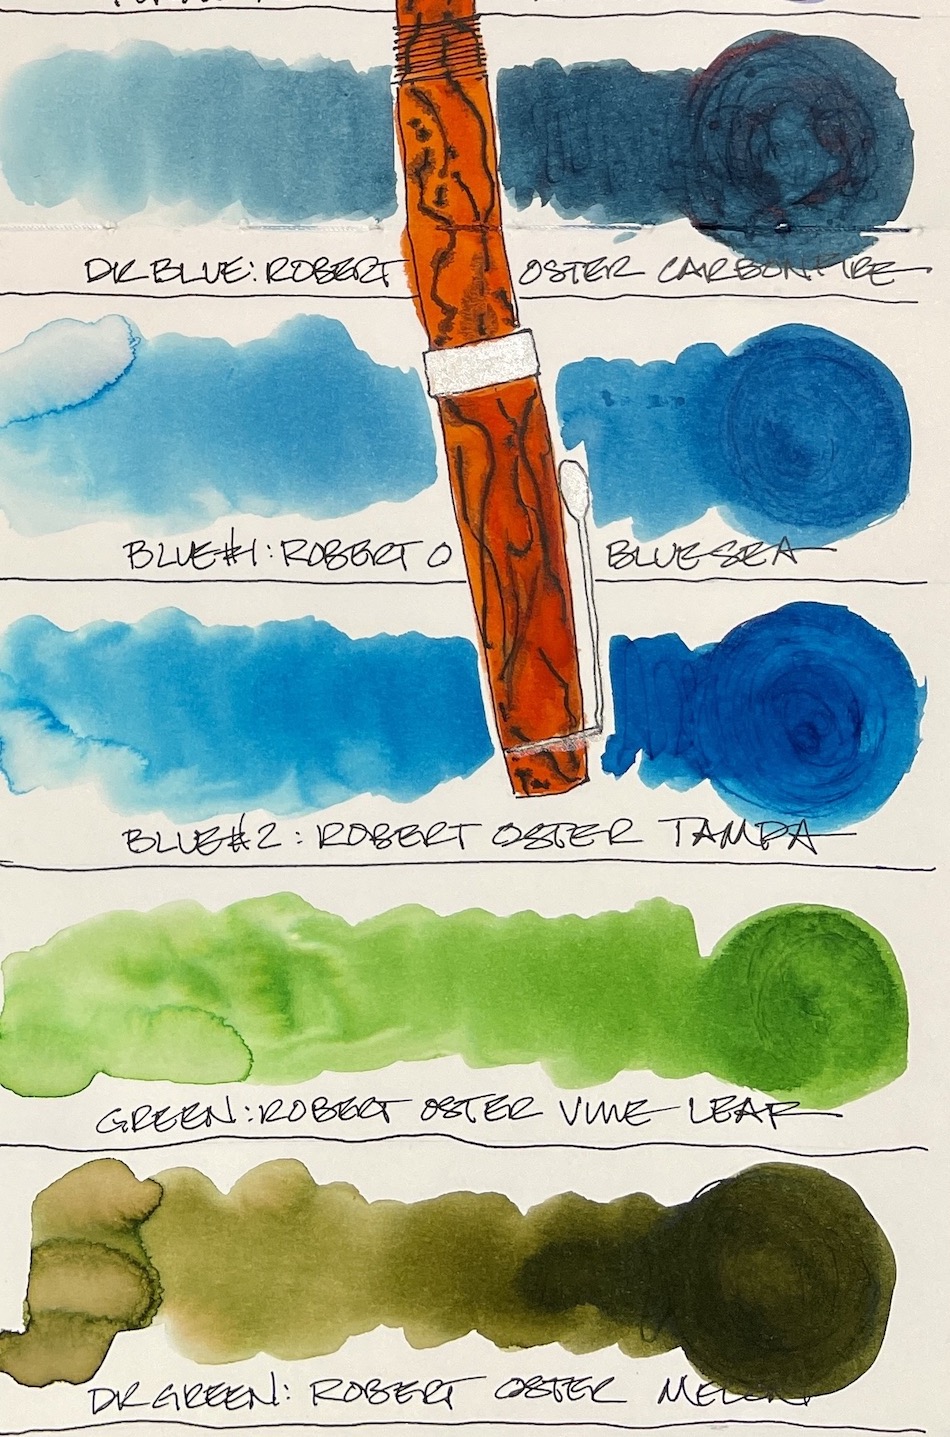 DK BLUE: ROBERT OSTER CARBON FIRE
BLUE#1: ROBERT O BLUE SEA
BLUE#2: ROBERT OSTER TAMPA
GREEN: ROBERT OSTER VINE LEAF
DK GREEN: ROBERT OSTER